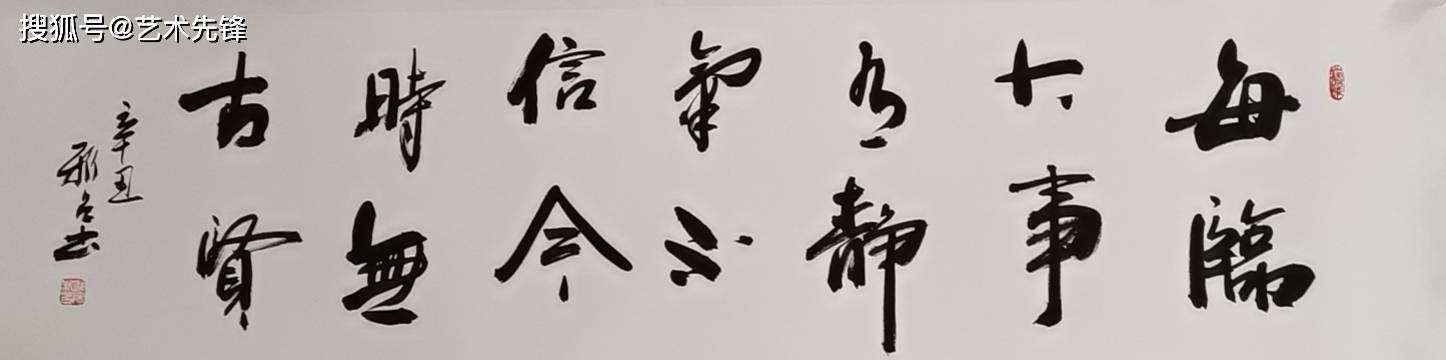 搜狐号@艺术先锋
每臨
大事
有靜
氣不
信今
時無
古賢
辛丑
雅书